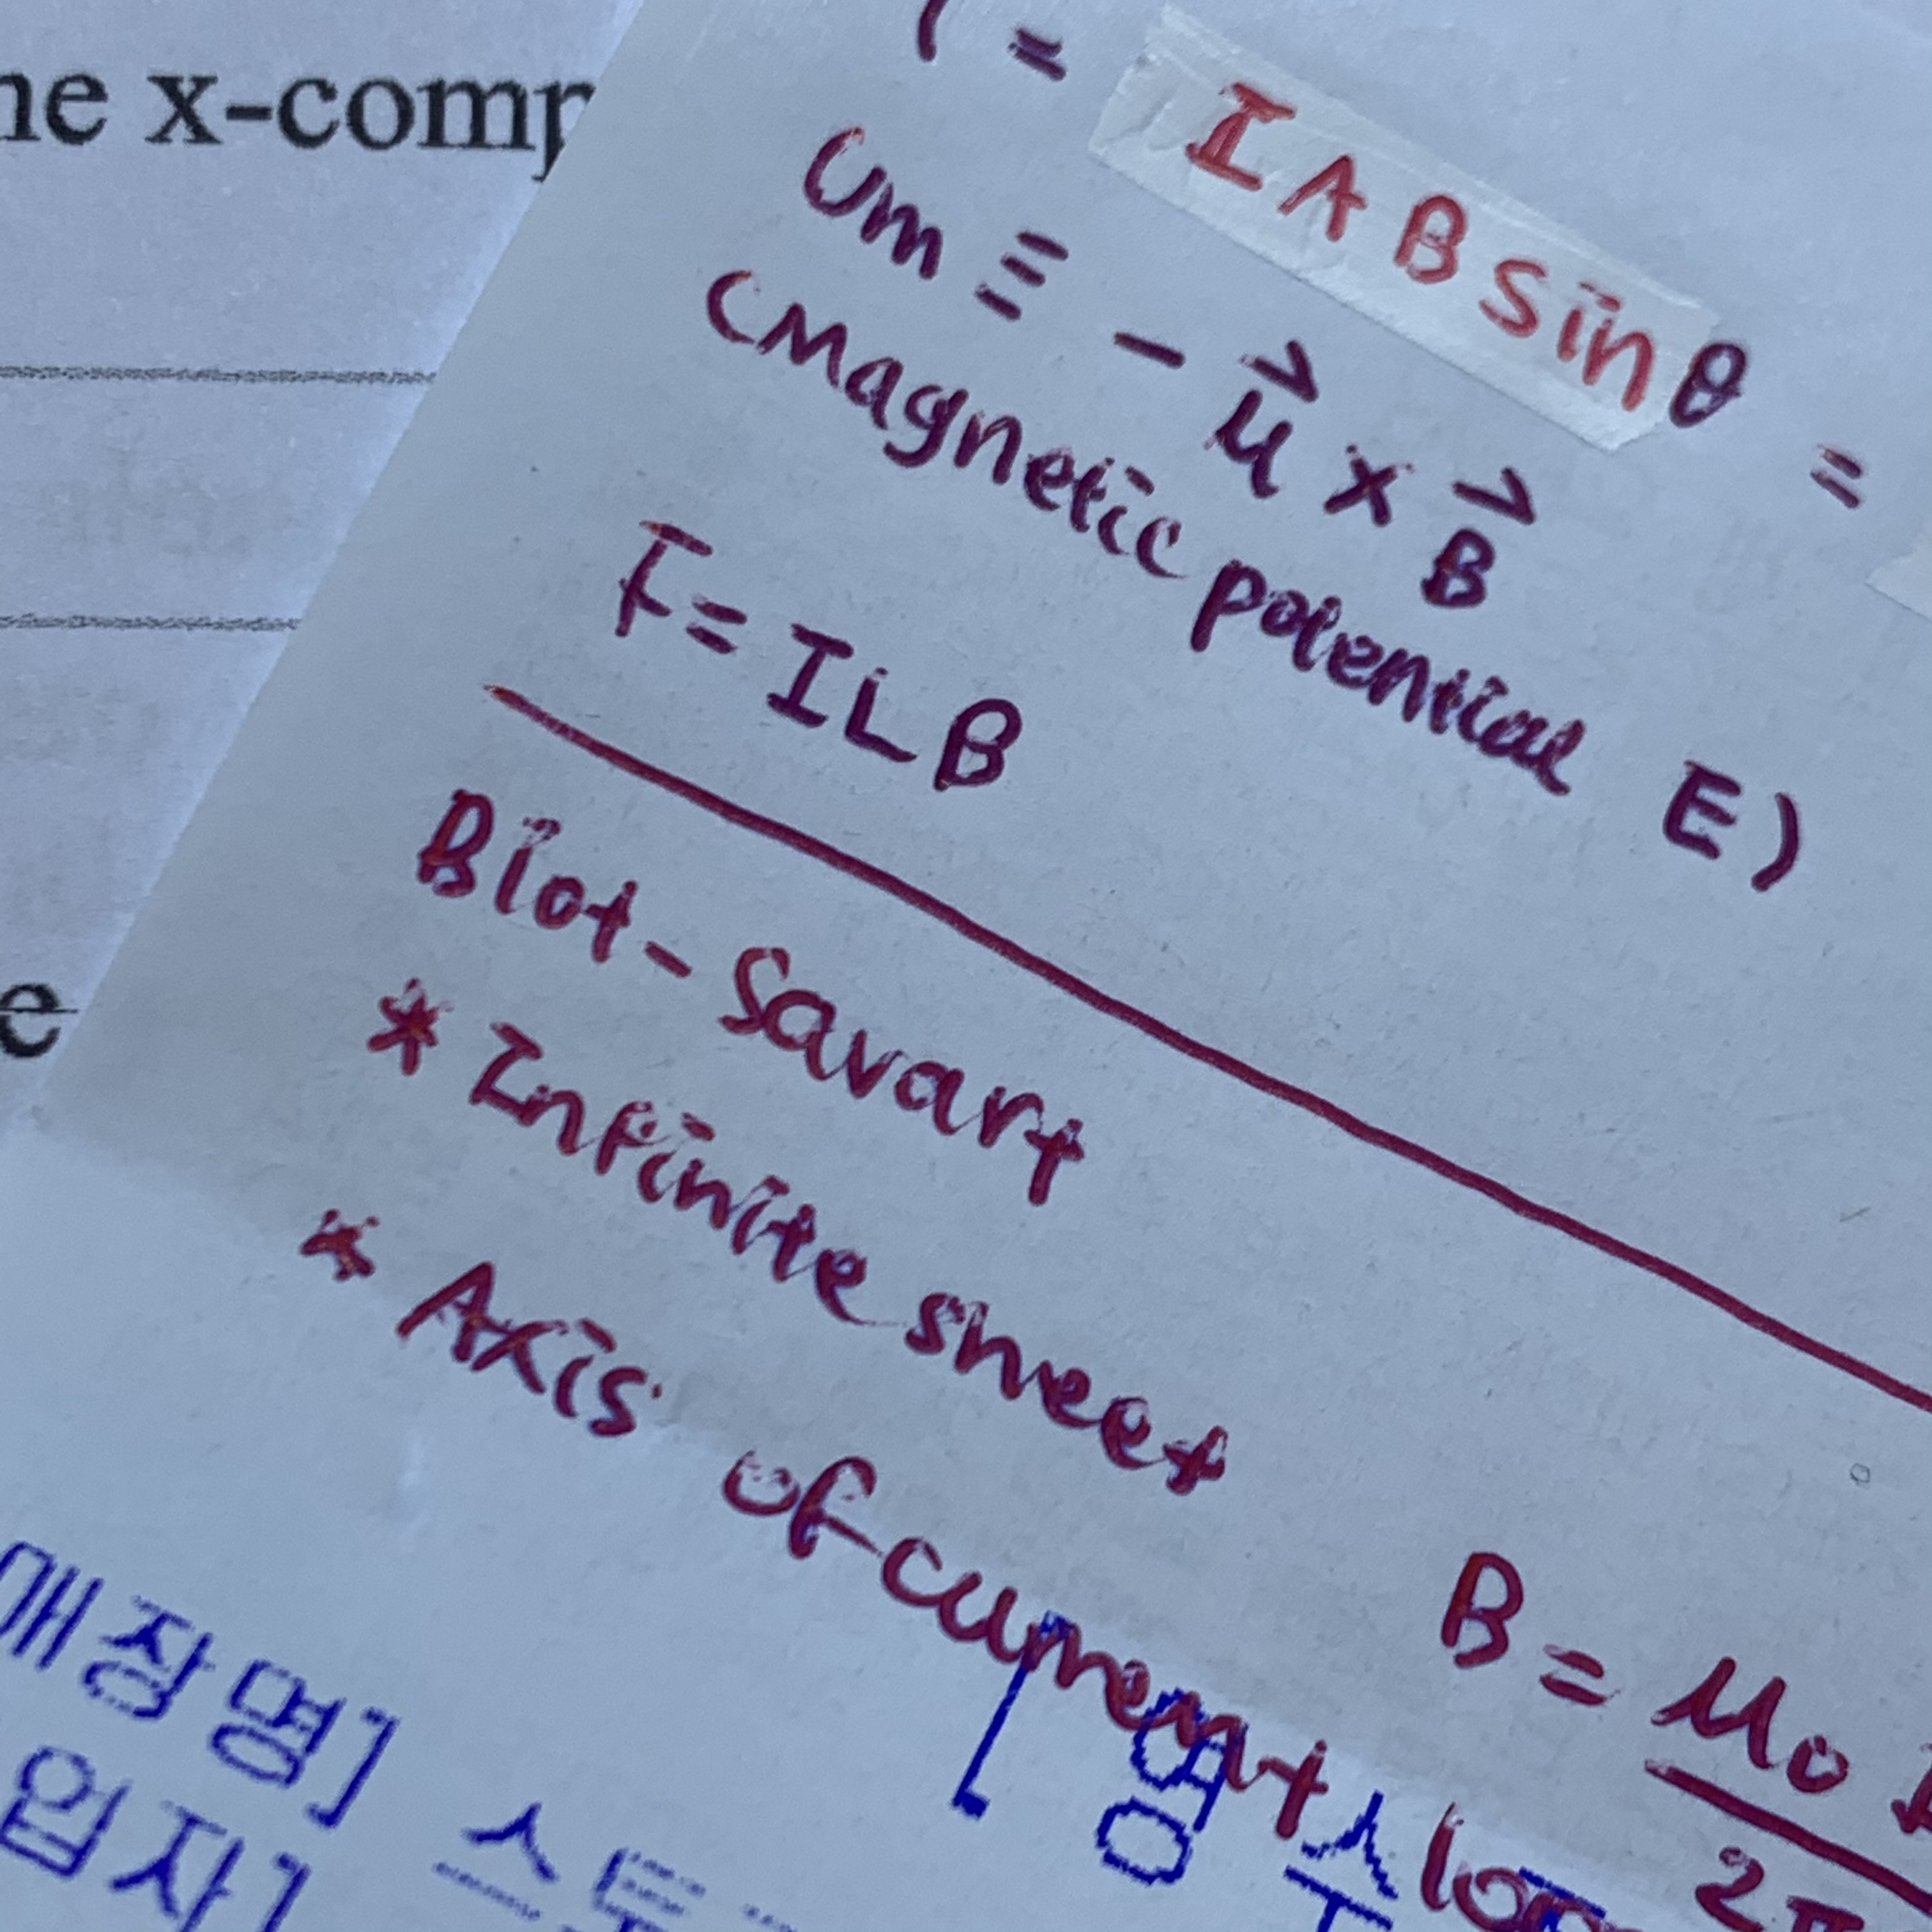 = IABsinθ =
Um ≡ - μ⃗ × B⃗
(Magnetic potential E)
F = ILB
Biot-Savart
* Infinite sheet
* Axis of current loop
B = μ₀
2π
x-comp
매장명]
[영수
입자]